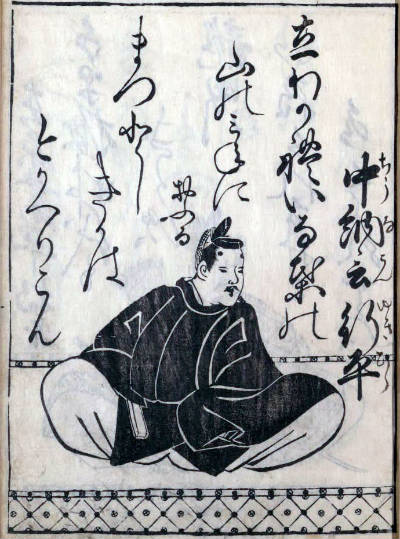 中納言行平
ちうなごんゆきひら
立わかれいな葉の
山のみねに
おふる
まつとし
きかは
今かへりこん